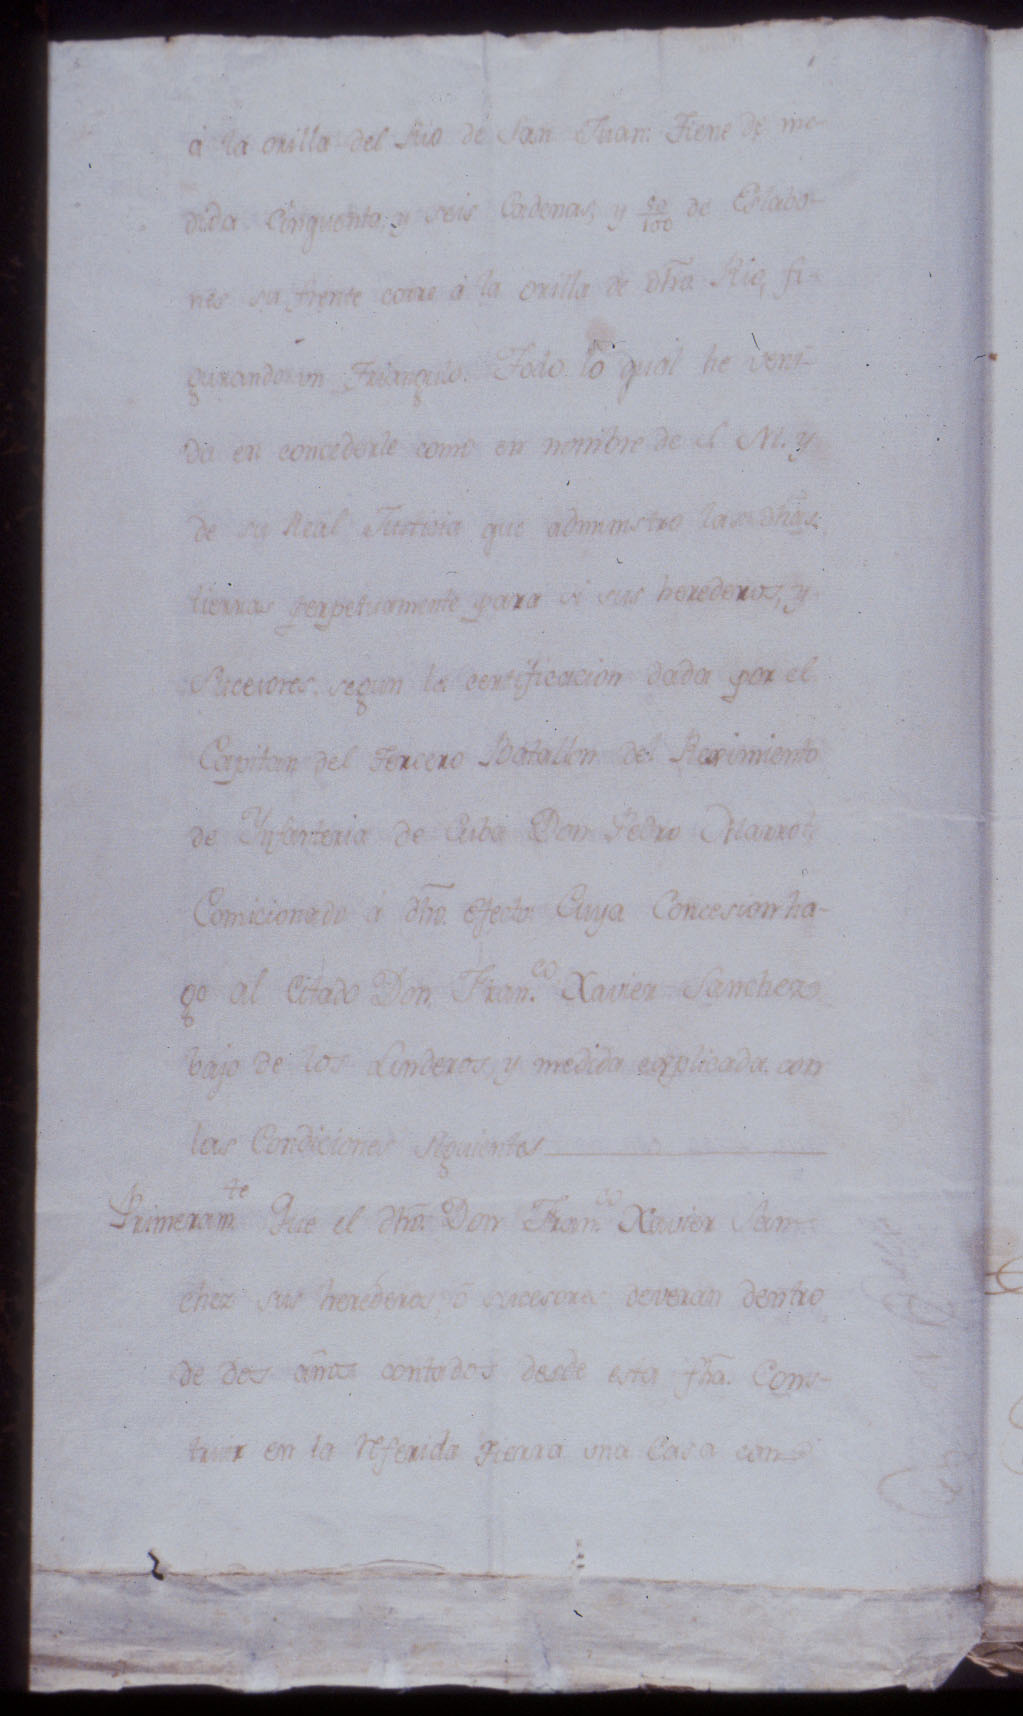 á la orilla del Rio de San Juan. Tiene de me-
dida Cinquenta, y seis Cadenas, y 50/100 de Eslabo-
nes su frente corre á la orilla de dho. Rio, fi-
gurando un Triangulo. Todo lo qual he veni-
do en concederle como en nombre de el M. y
de su Real Justicia que administro las dhas.
tierras perpetuamente para si sus herederos, y
Sucesores segun la certificacion dada por el
Capitan del Tercero Batallon del Reximiento
de Ynfanteria de Cuba Don Pedro Marrot
Comicionado á dho. efecto: Cuya Concesion ha-
go al Citado Don Fran.co Xavier Sanchez
bajo de los Linderos, y medida explicada con
las Condiciones siguientes
Primeram.te Que el dho. Don Fran.co Xavier San-
chez sus herederos, ó sucesores deveran dentro
de dos años contados desde esta fha. Cons-
truir en la referida tierra una Casa con